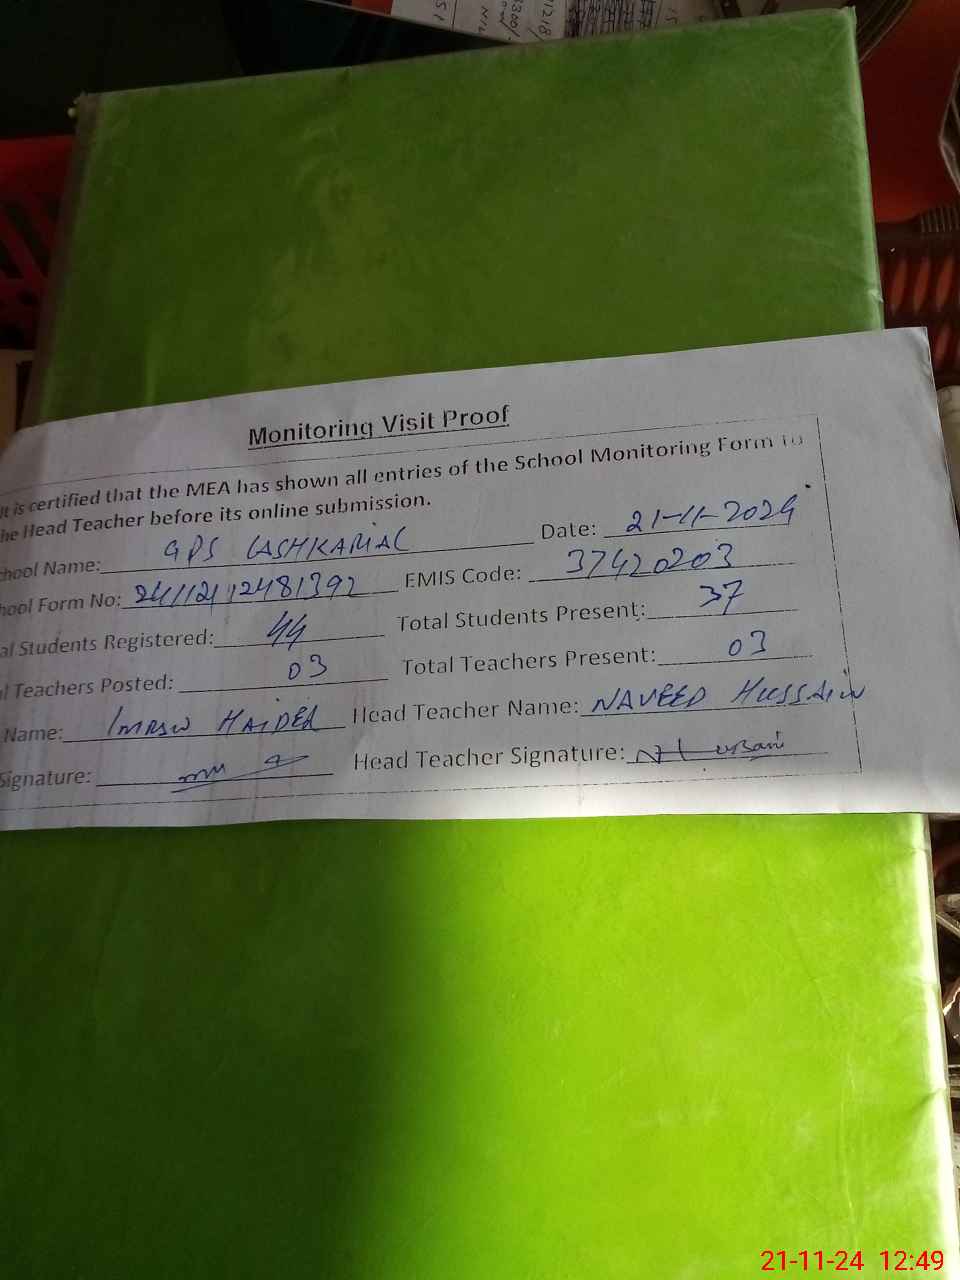 Monitoring Visit Proof
It is certified that the MEA has shown all entries of the School Monitoring Form to
he Head Teacher before its online submission.
chool Name: GPS LASHKARIAL Date: 21-11-2024
hool Form No: EMIS Code: 37420203
al Students Registered: 44 Total Students Present: 37
l Teachers Posted: 03 Total Teachers Present: 03
Name: IMRAN HAIDER Head Teacher Name: NAVEED HUSSAIN
Signature: Head Teacher Signature:
21-11-24 12:49